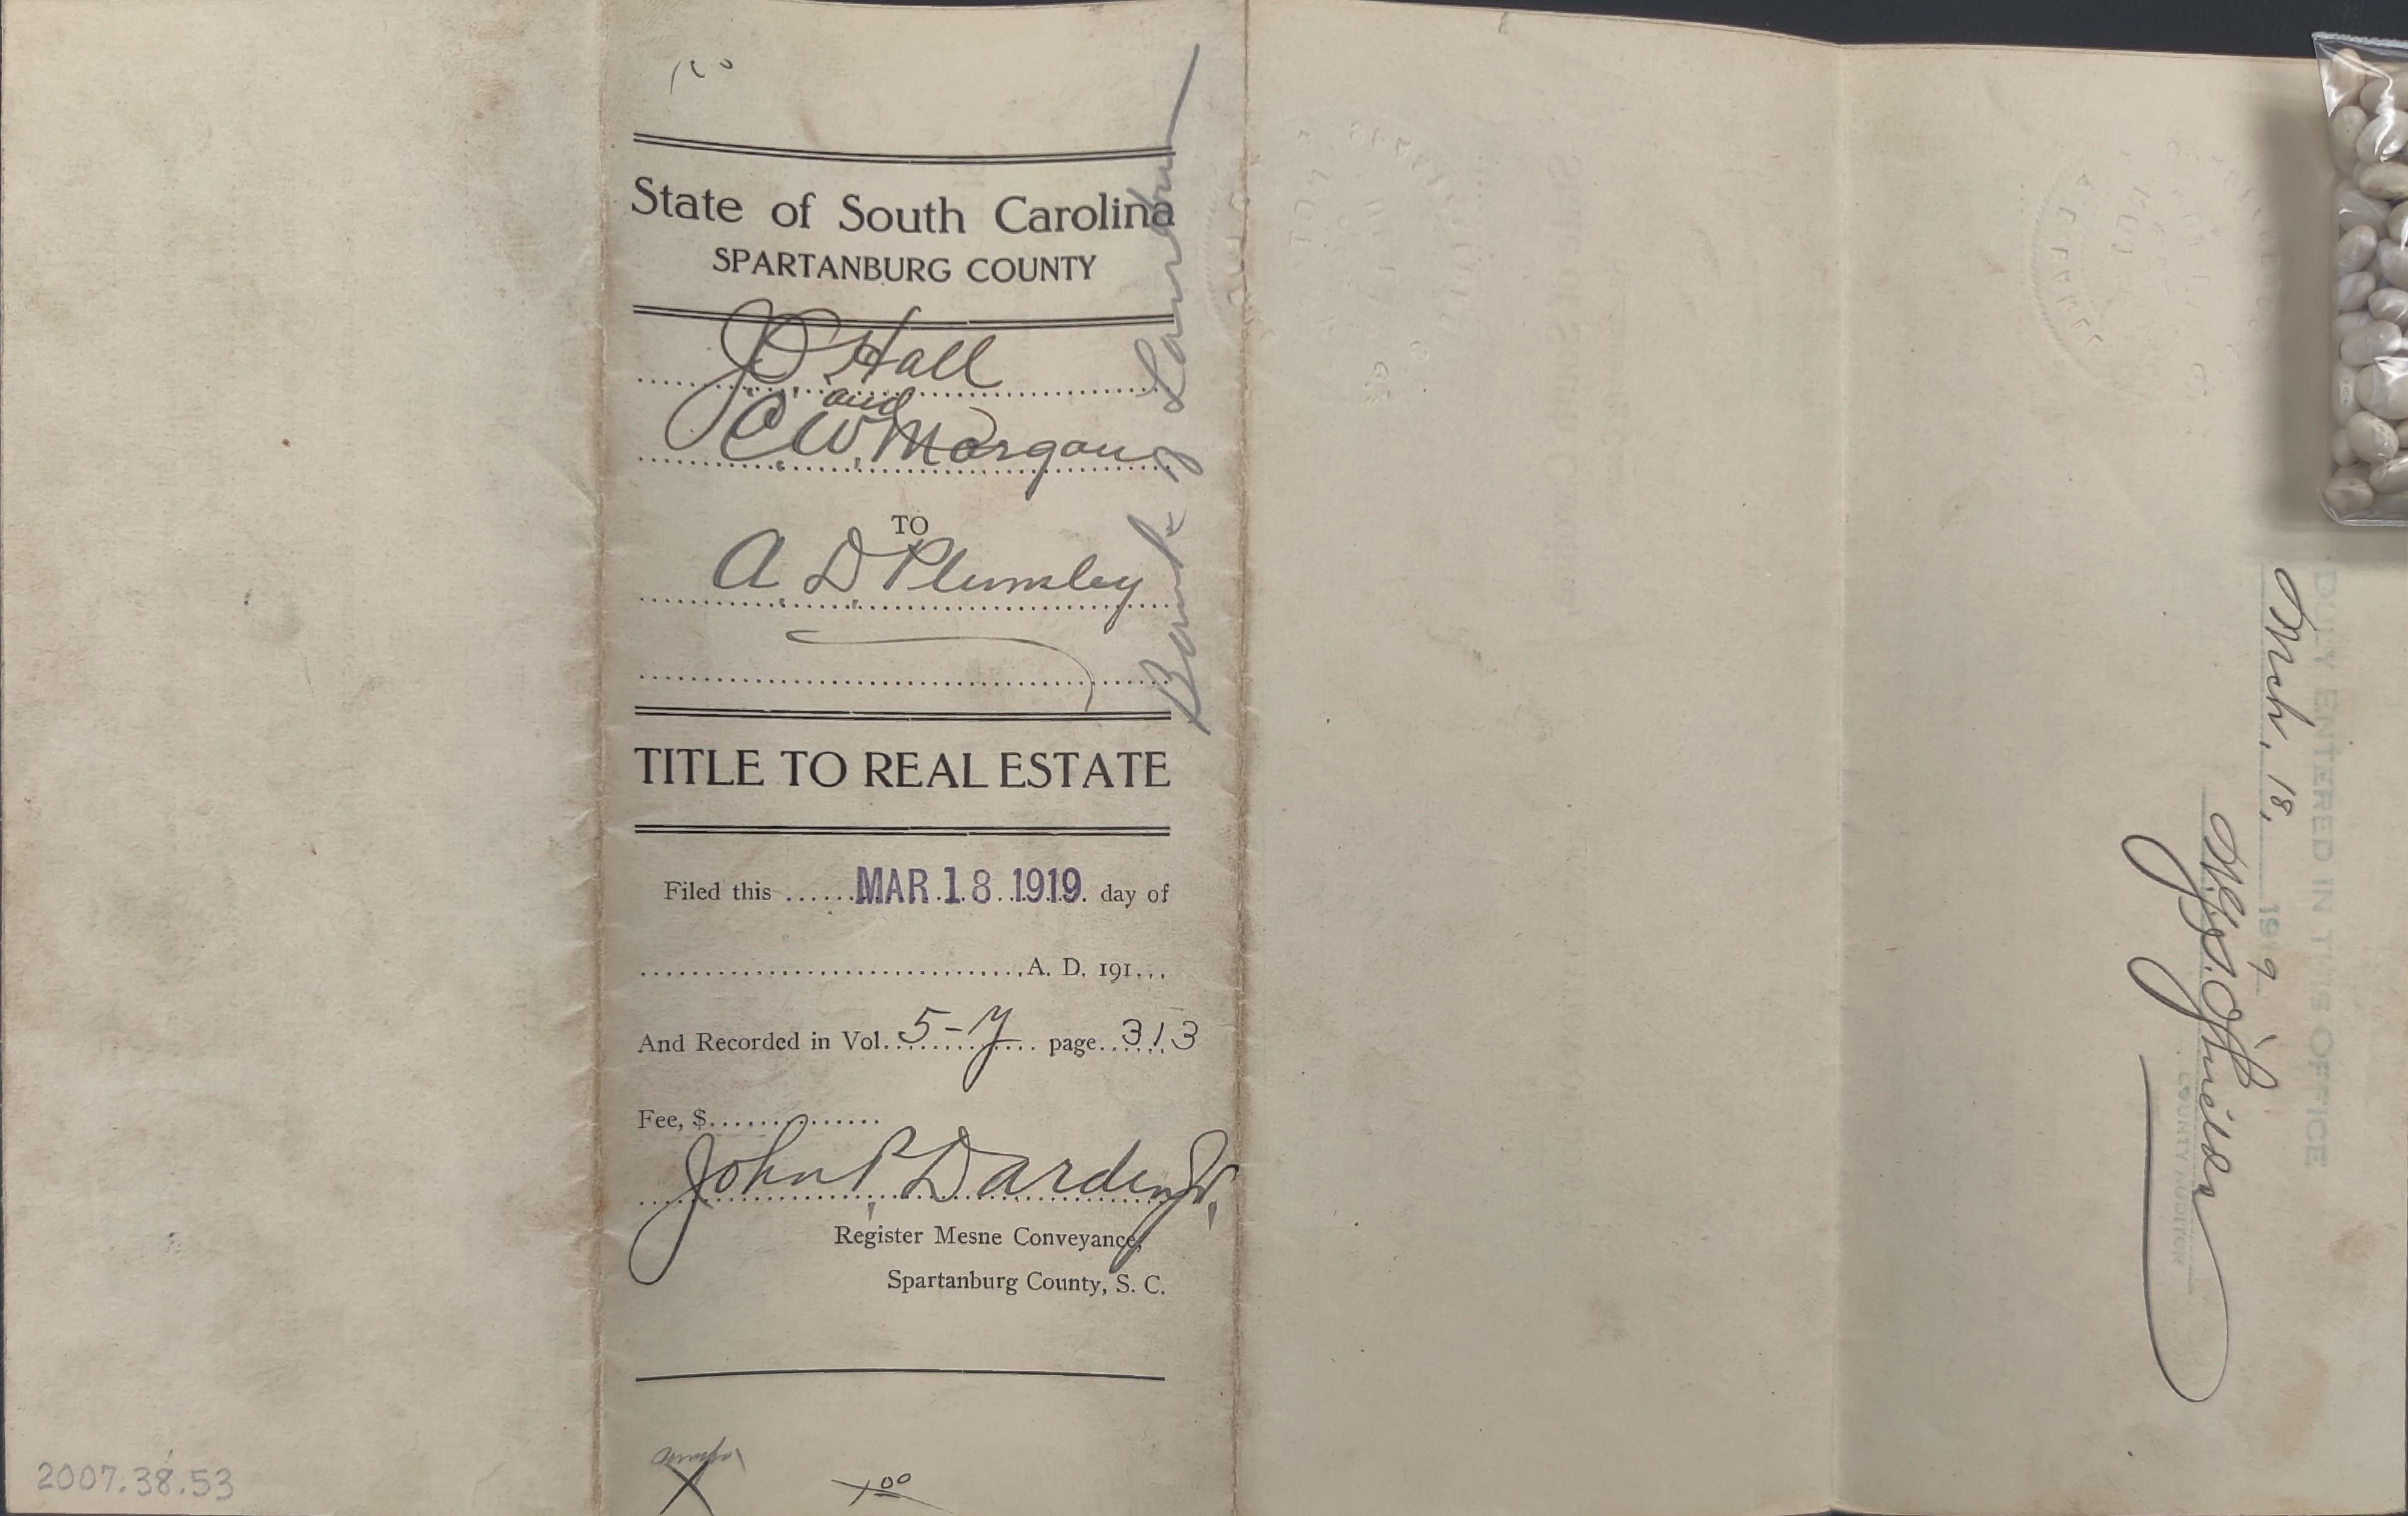 State of South Carolina
SPARTANBURG COUNTY
J O Hall
and
C. W. Morgan
TO
A. D. Plumley
Bank of Landrum
TITLE TO REAL ESTATE
Filed this MAR 18 1919 day of
A. D. 191
And Recorded in Vol. 5-Y page 313
Fee, $
John P. Darden Jr.
Register Mesne Conveyance,
Spartanburg County, S. C.
X
1 00
2007.38.53
DULY ENTERED IN THIS OFFICE
Mch. 18, 1919
COUNTY AUDITOR